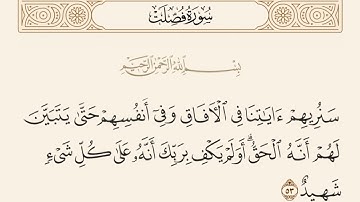 سُورَةُ فُصِّلَتْ
بِسْمِ اللَّهِ الرَّحْمَٰنِ الرَّحِيمِ
سَنُرِيهِمْ ءَايَٰتِنَا فِى ٱلْءَافَاقِ وَفِىٓ أَنفُسِهِمْ حَتَّىٰ يَتَبَيَّنَ
لَهُمْ أَنَّهُ ٱلْحَقُّ ۗ أَوَلَمْ يَكْفِ بِرَبِّكَ أَنَّهُۥ عَلَىٰ كُلِّ شَىْءٍ
شَهِيدٌ ٥٣